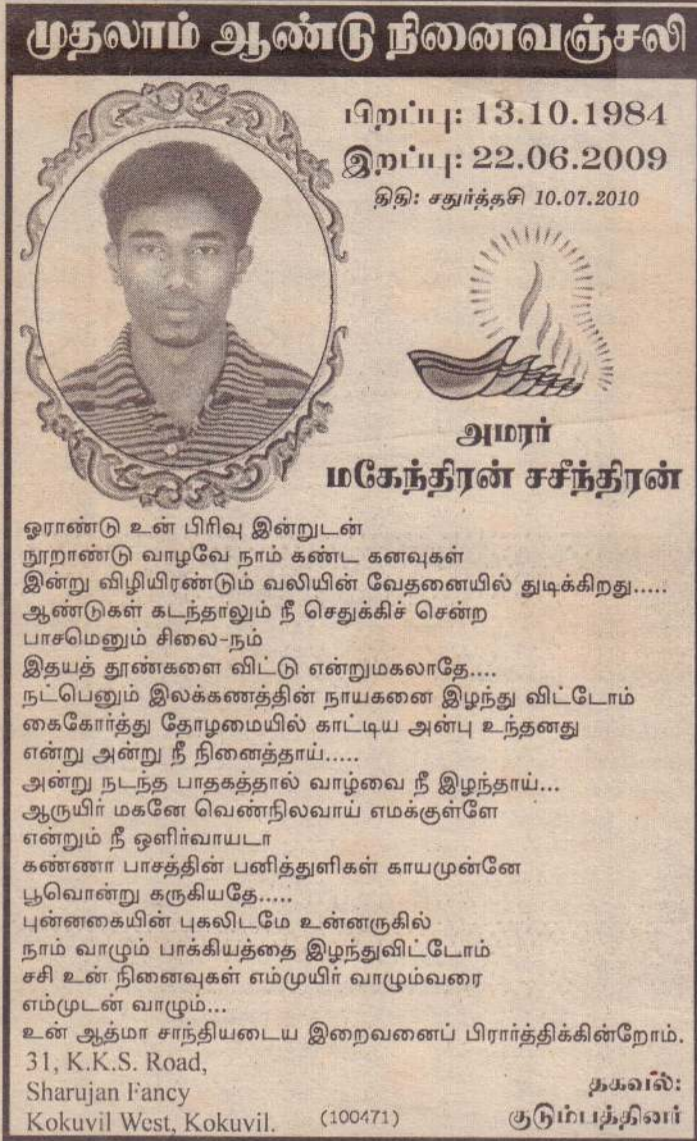 முதலாம் ஆண்டு நினைவஞ்சலி
பிறப்பு: 13.10.1984
இறப்பு: 22.06.2009
திதி: சதுர்த்தசி 10.07.2010
அமரர்
மகேந்திரன் சசீந்திரன்
ஓராண்டு உன் பிரிவு இன்றுடன்
நூறாண்டு வாழவே நாம் கண்ட கனவுகள்
இன்று விழியிரண்டும் வலியின் வேதனையில் துடிக்கிறது.....
ஆண்டுகள் கடந்தாலும் நீ செதுக்கிச் சென்ற
பாசமெனும் சிலை-நம்
இதயத் தூண்களை விட்டு என்றுமகலாதே....
நட்பெனும் இலக்கணத்தின் நாயகனை இழந்து விட்டோம்
கைகோர்த்து தோழமையில் காட்டிய அன்பு உந்தனது
என்று அன்று நீ நினைத்தாய்.....
அன்று நடந்த பாதகத்தால் வாழ்வை நீ இழந்தாய்...
ஆருயிர் மகனே வெண்நிலவாய் எமக்குள்ளே
என்றும் நீ ஒளிர்வாயடா
கண்ணா பாசத்தின் பனித்துளிகள் காயமுன்னே
பூவொன்று கருகியதே.....
புன்னகையின் புகலிடமே உன்னருகில்
நாம் வாழும் பாக்கியத்தை இழந்துவிட்டோம்
சசி உன் நினைவுகள் எம்முயிர் வாழும்வரை
எம்முடன் வாழும்...
உன் ஆத்மா சாந்தியடைய இறைவனைப் பிரார்த்திக்கின்றோம்.
31, K.K.S. Road,
Sharujan Fancy
Kokuvil West, Kokuvil.
(100471)
தகவல்:
குடும்பத்தினர்